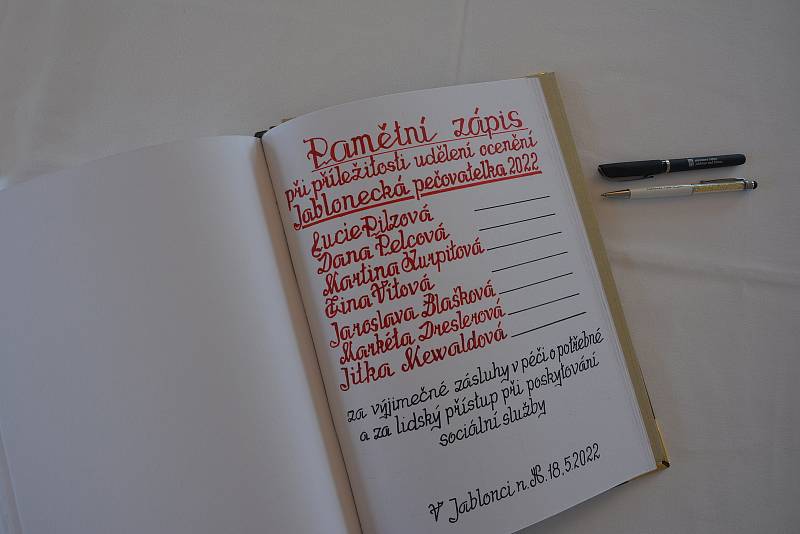 Pamětní zápis
při příležitosti udělení ocenění
Jablonecká pečovatelka 2022
Lucie Pilzová
Dana Pelcová
Martina Kurpitová
Tina Vítová
Jaroslava Blašková
Markéta Dreslerová
Jitka Mewaldová
za výjimečné zásluhy v péči o potřebné
a za lidský přístup při poskytování
sociální služby
V Jablonci n. N. 18.5.2022